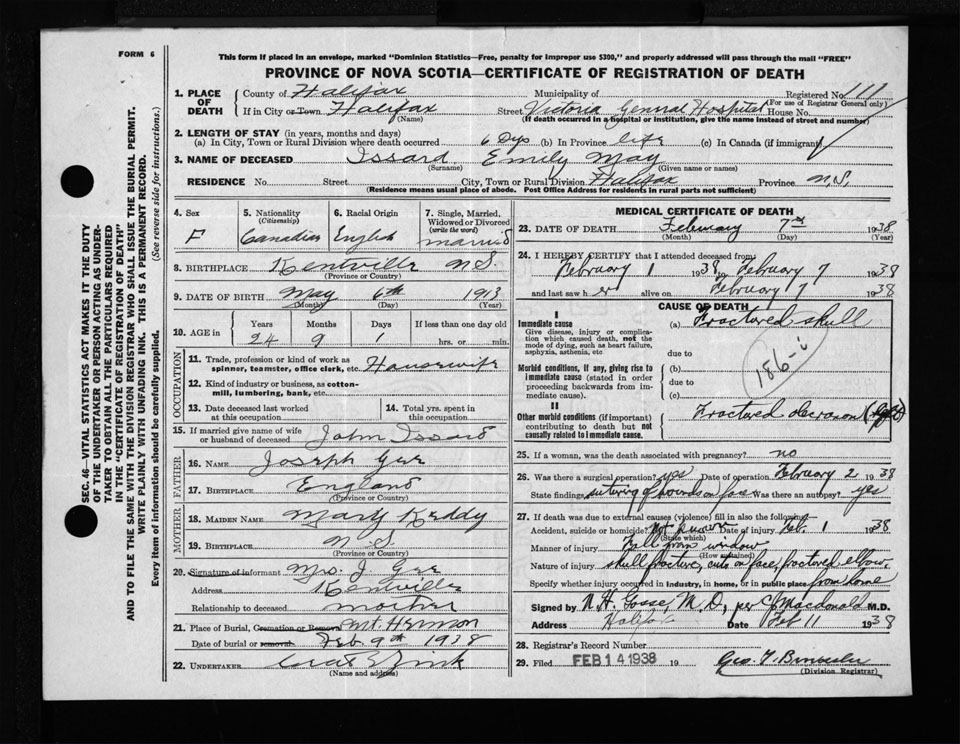 FORM 6
This form if placed in an envelope, marked "Dominion Statistics—Free, penalty for improper use $300," and properly addressed will pass through the mail "FREE"
PROVINCE OF NOVA SCOTIA—CERTIFICATE OF REGISTRATION OF DEATH
1. PLACE OF DEATH
County of Halifax Municipality of Registered No. 111
(For use of Registrar General only)
If in City or Town Halifax Street Victoria General Hospital House No.
(Name) (If death occurred in a hospital or institution, give the name instead of street and number)
2. LENGTH OF STAY (in years, months and days)
(a) In City, Town or Rural Division where death occurred 6 Dys (b) In Province life (c) In Canada (if immigrant)
3. NAME OF DECEASED Issard Emily May
(Surname) (Given name or names)
RESIDENCE No. Street City, Town or Rural Division Halifax Province N.S.
(Residence means usual place of abode. Post Office Address for residents in rural parts not sufficient)
SEC. 46—VITAL STATISTICS ACT MAKES IT THE DUTY
OF THE UNDERTAKER OR PERSON ACTING AS UNDER-
TAKER TO OBTAIN ALL THE PARTICULARS REQUIRED
IN THE "CERTIFICATE OF REGISTRATION OF DEATH"
AND TO FILE THE SAME WITH THE DIVISION REGISTRAR WHO SHALL ISSUE THE BURIAL PERMIT.
WRITE PLAINLY WITH UNFADING INK. THIS IS A PERMANENT RECORD.
Every item of information should be carefully supplied. (See reverse side for instructions.)
4. Sex
F
5. Nationality
(Citizenship)
Canadian
6. Racial Origin
English
7. Single, Married,
Widowed or Divorced
(write the word)
married
8. BIRTHPLACE Kentville N.S.
(Province or Country)
9. DATE OF BIRTH May 6th 1913
(Month) (Day) (Year)
10. AGE in
Years Months Days If less than one day old
24 9 1 hrs. or min.
OCCUPATION
11. Trade, profession or kind of work as
spinner, teamster, office clerk, etc. Housewife
12. Kind of industry or business, as cotton-
mill, lumbering, bank, etc.
13. Date deceased last worked
at this occupation
14. Total yrs. spent in
this occupation
15. If married give name of wife
or husband of deceased John Issard
FATHER
16. Name Joseph Gee
17. Birthplace England
(Province or Country)
MOTHER
18. Maiden Name Mary Keddy
19. Birthplace N.S.
(Province or Country)
20. Signature of informant Mrs. J. Gee
Address Kentville
Relationship to deceased mother
21. Place of Burial, Cremation or Removal Mt. Hermon
Date of burial or removal Feb 9th 1938
22. UNDERTAKER
(Name and address)
MEDICAL CERTIFICATE OF DEATH
23. DATE OF DEATH February 7th 1938
(Month) (Day) (Year)
24. I HEREBY CERTIFY that I attended deceased from:
February 1 1938 to February 7 1938
and last saw her alive on February 7 1938
CAUSE OF DEATH
I
Immediate cause
Give disease, injury or complica-
tion which caused death, not the
mode of dying, such as heart failure,
asphyxia, asthenia, etc
(a) Fractured skull
due to
Morbid conditions, if any, giving rise to
immediate cause (stated in order
proceeding backwards from im-
mediate cause).
(b)
due to
(c)
186-i
II
Other morbid conditions (if important)
contributing to death but not
causally related to immediate cause.
Fractured olecranon
25. If a woman, was the death associated with pregnancy? no
26. Was there a surgical operation? yes Date of operation February 2 1938
State findings suturing of wounds on face Was there an autopsy? yes
27. If death was due to external causes (violence) fill in also the following—
Accident, suicide or homicide? Not known Date of injury Feb. 1 1938
(State which)
Manner of injury Fall from window
(How sustained)
Nature of injury skull fracture, cuts on face, fractured elbow
Specify whether injury occured in industry, in home, or in public place from home
Signed by N. H. Gosse, M.D., per Macdonald M.D.
Address Halifax Date Feb 11 1938
28. Registrar's Record Number
29. Filed FEB 14 1938 19
(Division Registrar)